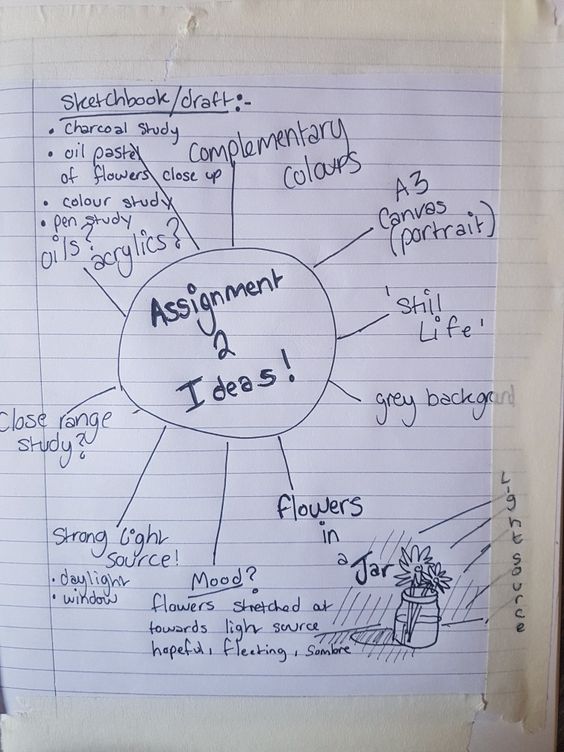 Sketchbook/draft:-
• charcoal study
• oil pastel
of flowers close up
• colour study
• pen study
oils? acrylics?
Complementary
Colours
A3
Canvas
(portrait)
'Still
Life'
grey backgrond
Assignment
2
Ideas!
Close range
study?
Strong light
source!
• daylight
• window
Mood?
flowers stretched at
towards light source
hopeful, fleeting, sombre
flowers
in
a
Jar
Light source